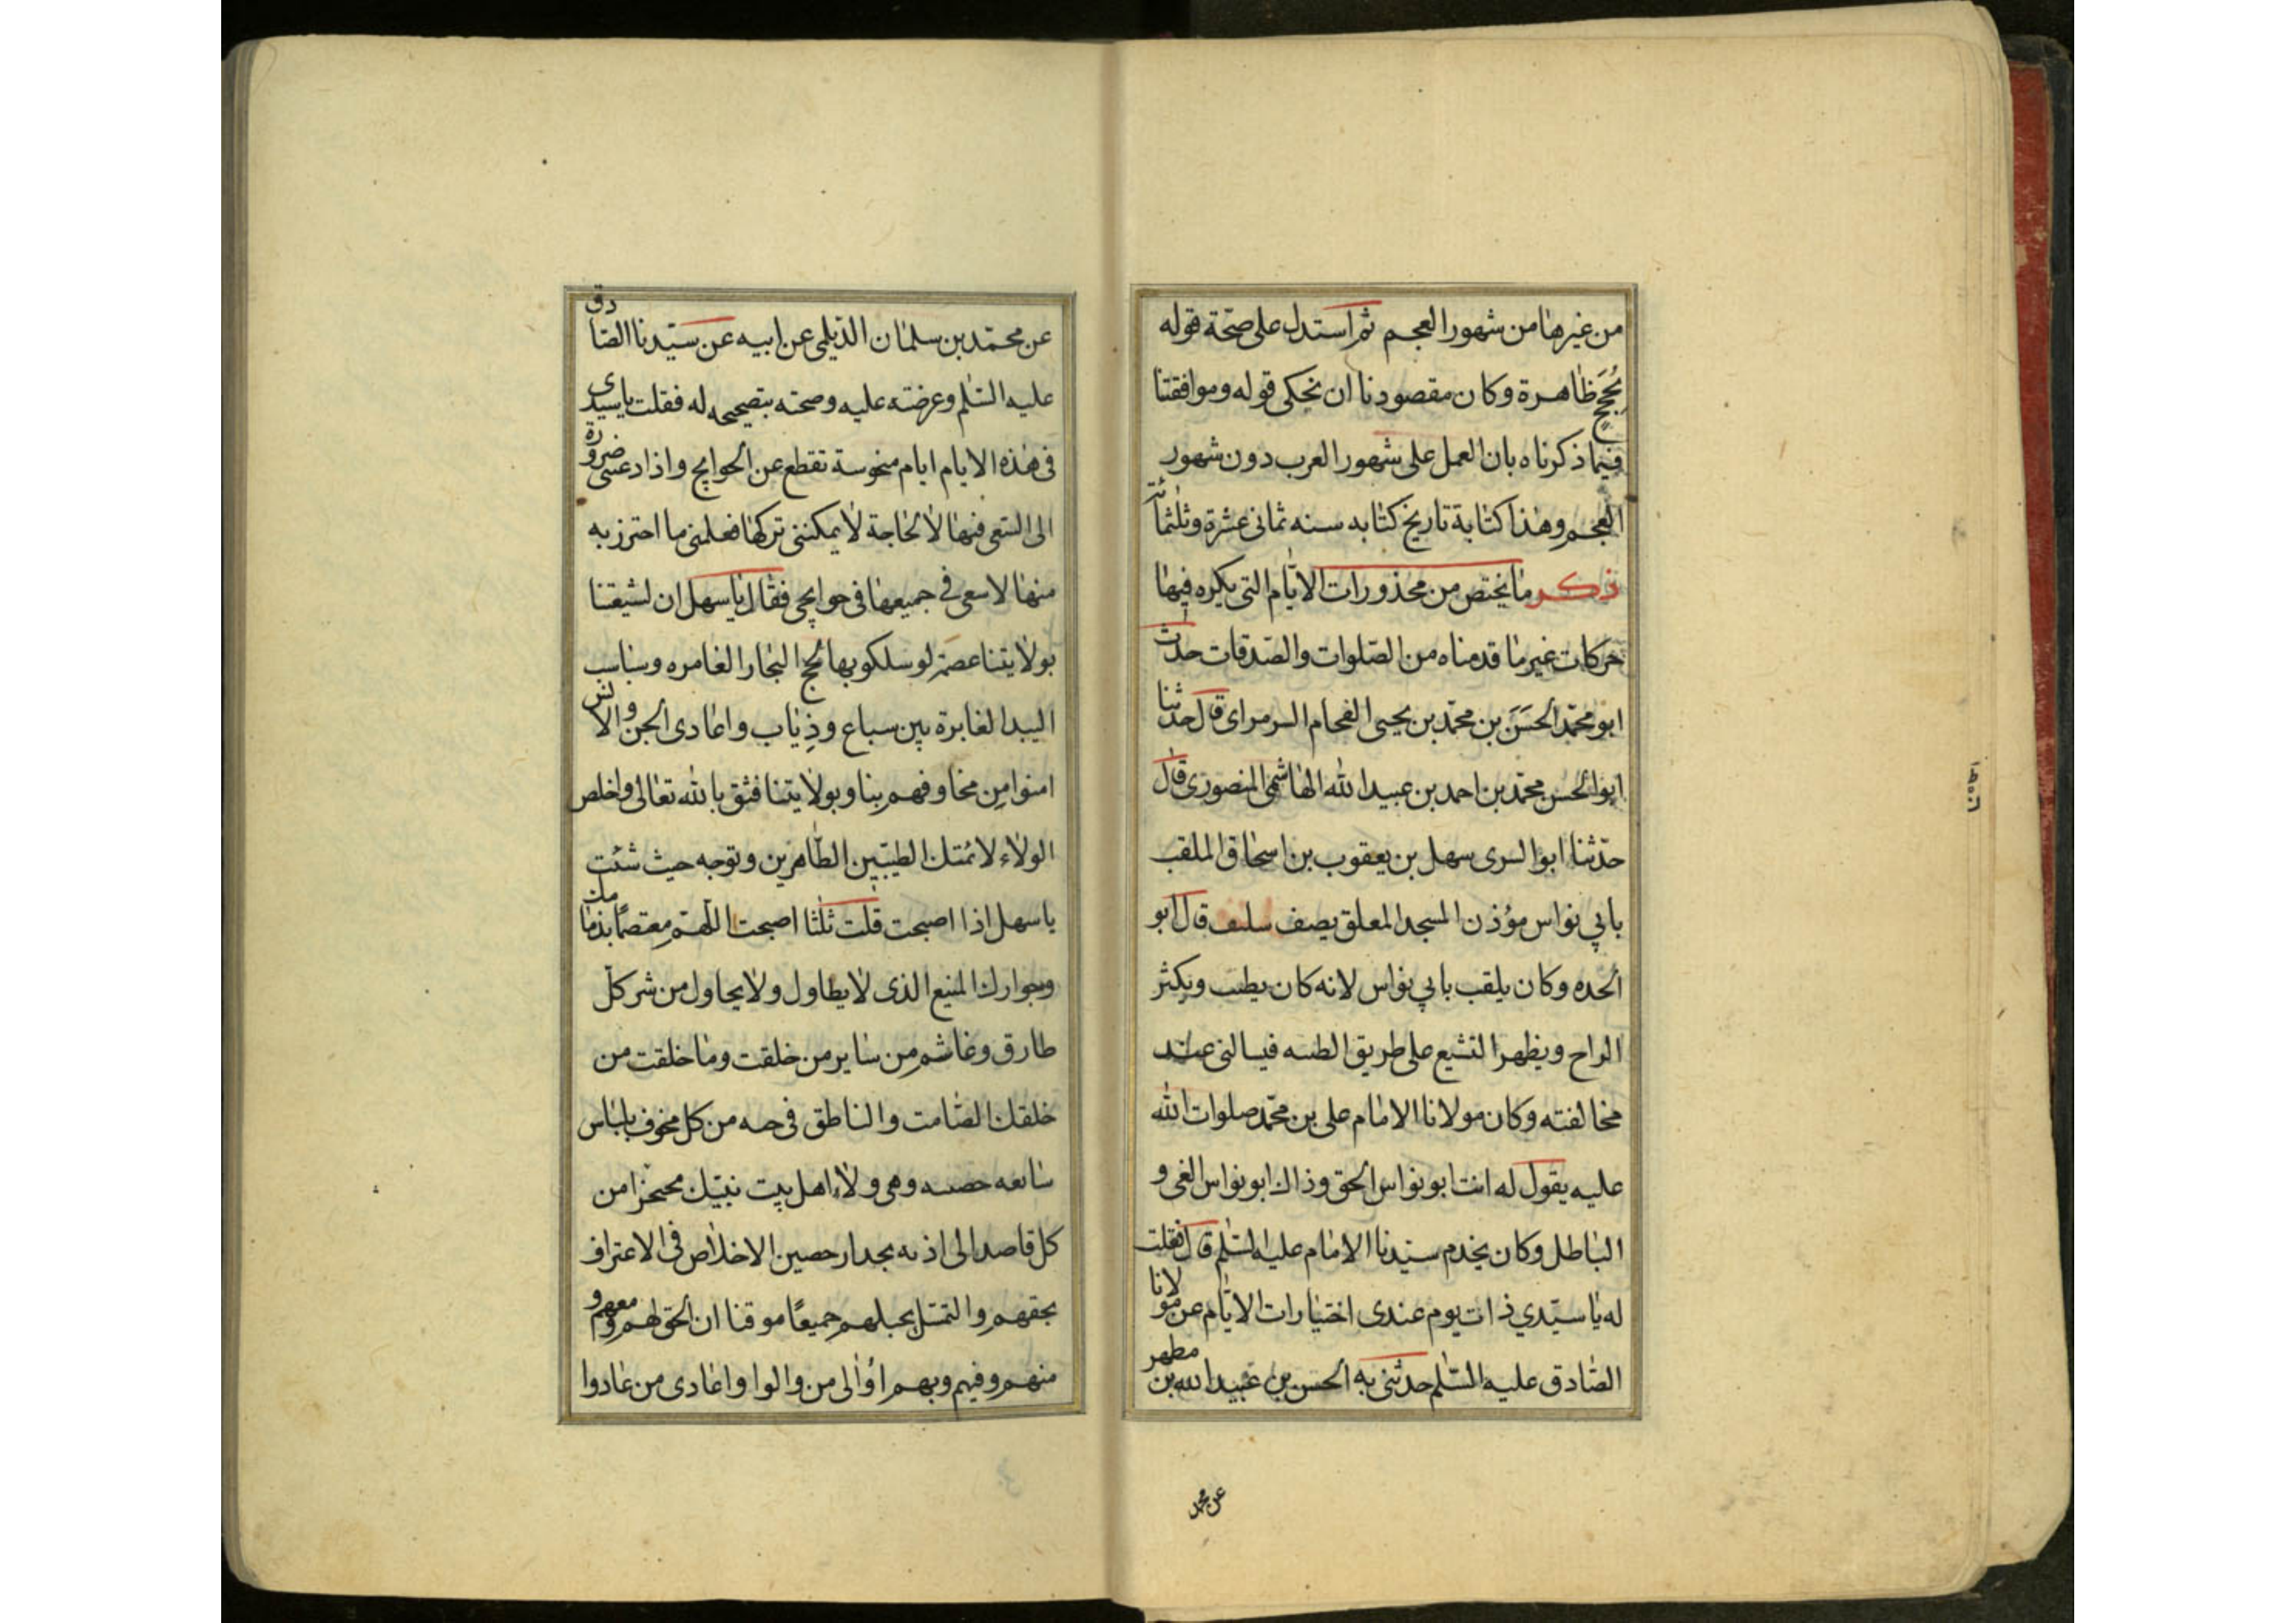 من غيرها من شهور العجم ثم استدل على صحّة قوله
بحُجَجٍ ظاهرة وكان مقصودنا ان نحكى قوله وموافقتنا
فيما ذكرناه بان العمل على شهور العرب دون شهور
العجم وهذا كتابة تاريخ كتابه سنه ثمانى عشرة وثلثمائة
ذكر ما يختص من محذورات الايّام التى يكره فيها
حركات غير ما قدمناه من الصّلوات والصّدقات حدّث
ابو محمّد الحسَن بن محمّد بن يحيى الفحام السرمراى قال حدثنا
ابو الحسن محمّد بن احمد بن عبيد الله الهاشمى المنصورى قال
حدّثنا ابو السرى سهل بن يعقوب بن اسحاق الملقب
بابي نواس مؤذن المسجد المعلق بصف قال ابو
الحده وكان يلقب بابي نواس لانه كان يطيب ويكثر
الراح ويظهر التشيع على طريق الطىبه فيسالنى عند
مخالفته وكان مولانا الامام على بن محمّد صلوات الله
عليه يقول له انت ابو نواس الحق وذاك ابو نواس الغى و
الباطل وكان يخدم سيّدنا الامام عليه السّلم قال فقلت
له يا سيّدي ذات يوم عندى اختيارات الايّام عن مولانا
الصّادق عليه السّلم حدثنى به الحسن بن عبيد الله بن مطهر
عن محمد
عن محمّد بن سلمان الدّيلمى عن ابيه عن سيّدنا الصّادق
عليه السّلم وعرضته عليه وصحته بتصحيحه له فقلت يا سيدى
فى هذه الايام ايام منحوسة تقطع عن الحوايج واذا دعتنى ضرورة
الى السّعى فيها لا لحاجة لا يمكننى تركها فعلمنى ما احترز به
منها لاسعى فى جميعها فى حوايجى فقال يا سهل ان لشيعتنا
بولايتنا عصمة لو سلكو بها لجج البحار الغامره وسباسب
البيدا لغابرة بين سباع وذياب واعادى الجن والانس
امنوا من مخاوفهم بنا وبولايتنا فثق بالله تعالى واخلص
الولاء لائمتك الطيبّين الطّاهرين وتوجه حيث شئت
يا سهل اذا اصبحت قلت ثلثا اصبحت اللّهمّ معتصمًا بذمامك
وبجوارك المنيع الذى لا يطاول ولا يحاول من شر كلّ
طارق وغاشم من ساير من خلقت وما خلقت من
خلقك الصّامت والناطق فى جنه من كل مخوف بلباس
سابغه حصىىه وهى ولاء اهل بيت نبيّك محتجزا من
كل قاصد الى اذىه بجدار حصين الاخلاص فى الاعتراف
بحقهم والتمسّك بحبلهم جميعًا موقنا ان الحق لهم ومعهم و
منهم وفيهم وبهم اوالى من والوا واعادى من عادوا